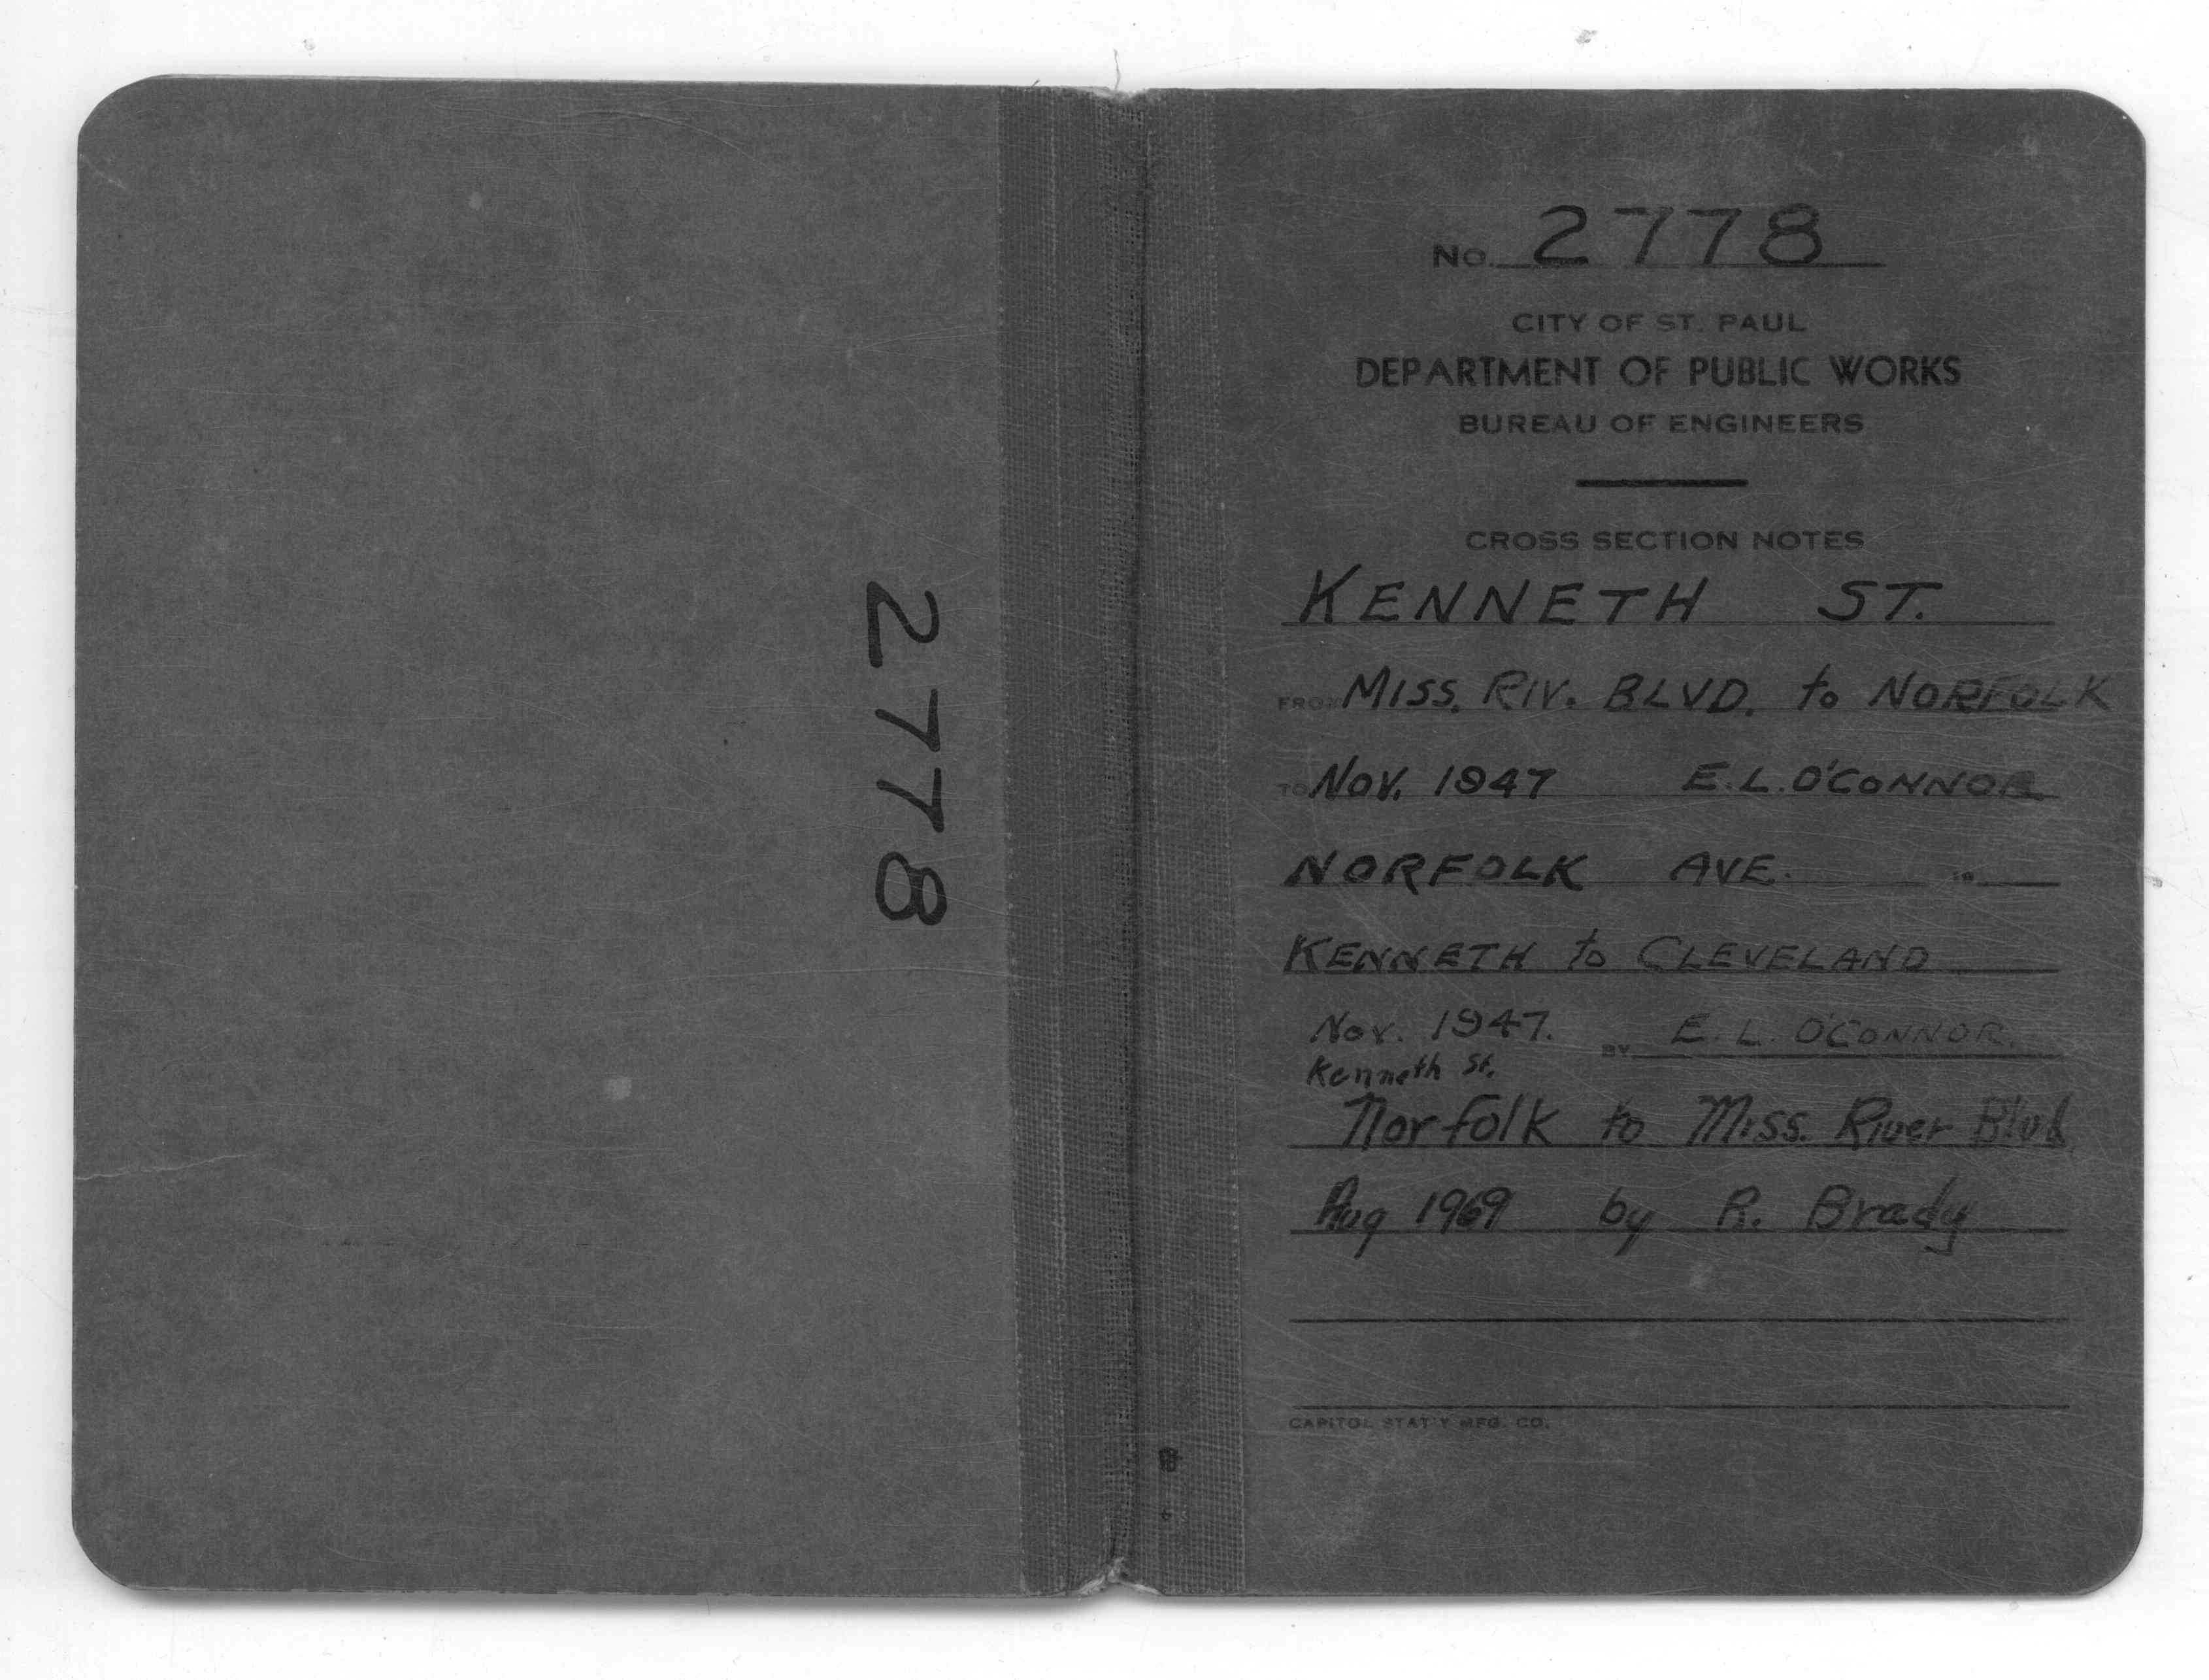 2778
No. 2778
CITY OF ST. PAUL
DEPARTMENT OF PUBLIC WORKS
BUREAU OF ENGINEERS
CROSS SECTION NOTES
KENNETH ST.
FROM MISS. RIV. BLVD. to NORFOLK
TO NOV. 1947 E.L. O'CONNOR
NORFOLK AVE. 19
KENNETH to CLEVELAND
Nov. 1947. BY E. L. O'CONNOR.
Kenneth St.
Norfolk to Miss. River Blvd
Aug 1969 by R. Brady
CAPITOL STAT'Y MFG. CO.